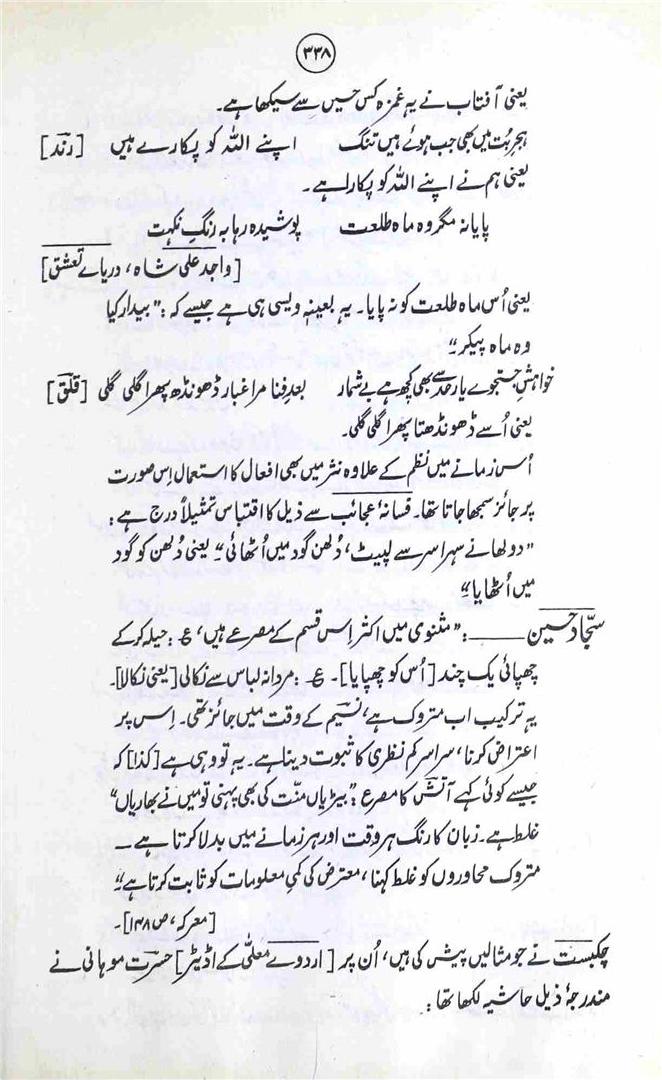 ۳۳۸
یعنی آفتاب نے یہ غمزہ کس حسیں سے سیکھا ہے۔
ہجرِ بُت میں بھی جب ہوئے ہیں تنگ اپنے اللہ کو پکارے ہیں [رندؔ]
یعنی ہم نے اپنے اللہ کو پکارا ہے۔
پایا نہ مگر وہ ماہ طلعت پوشیدہ رہا بہ رنگِ نکہت
[واجد علی شاہ، دریاے تعشق]
یعنی اُس ماہ طلعت کو نہ پایا۔ یہ بعینہٖ ویسی ہی ہے جیسے کہ: "بیدار کیا
وہ ماہ پیکر"
خواہشِ جستجوے یار حد سے بھی کچھ ہے بے شمار بعدِ فنا مرا غبار ڈھونڈھ پھرا گلی گلی [قلقؔ]
یعنی اُسے ڈھونڈھتا پھرا گلی گلی۔
اُس زمانے میں نظم کے علاوہ نثر میں بھی افعال کا استعمال اِس صورت
پر جائز سمجھا جاتا تھا۔ فسانۂ عجائب سے ذیل کا اقتباس تمثیلاً درج ہے:
"دولھا نے سہرا سر سے لپیٹ، دُلھن گود میں اُٹھائی" یعنی دُلھن کو گود
میں اُٹھایا"
سجّاد حسین ——: "مثنوی میں اکثر اِس قسم کے مصرعے ہیں، ع: حیلہ کر کے
چھپائی یک چند [اُس کو چھپایا]۔ ع: مردانہ لباس سے نکالی [یعنی نکالا]۔
یہ ترکیب اب متروک ہے، نسیمؔ کے وقت میں جائز تھی۔ اِس پر
اعتراض کرنا، سراسر کم نظری کا ثبوت دینا ہے۔ یہ تو وہی ہے [کذا] کہ
جیسے کوئی کہے آتشؔ کا مصرع: "بیڑیاں منّت کی بھی پہنی تو میں نے بھاریاں"
غلط ہے۔ زبان کا رنگ ہر وقت اور ہر زمانے میں بدلا کرتا ہے —
متروک محاوروں کو غلط کہنا، معترض کی کمیِ معلومات کو ثابت کرتا ہے"
[معرکہ، ص ۱۴۸]۔
چکبست نے جو مثالیں پیش کی ہیں، اُن پر [اردوے معلّیٰ کے اڈیٹر] حسرت موہانی نے
مندرجۂ ذیل حاشیہ لکھا تھا: